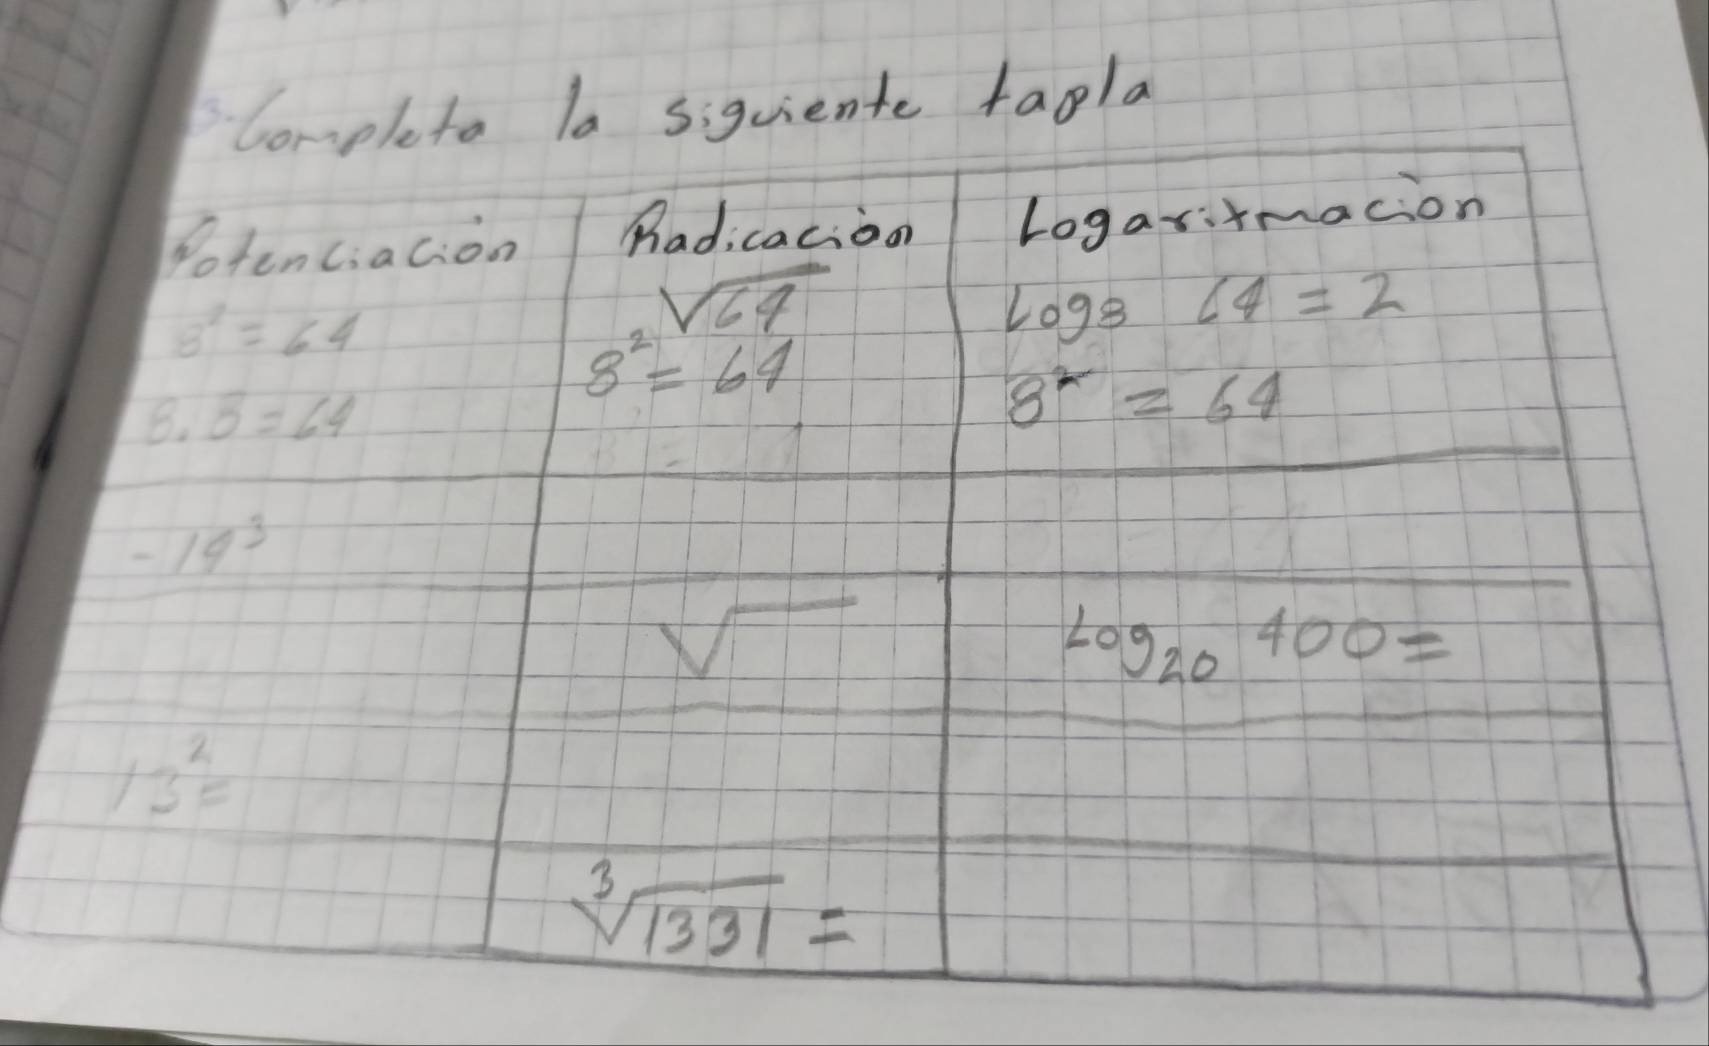 3. Completa la siguiente tabla
Potenciación Radicaciòn Logaritmaciòn
8² = 64 √64 Log8 64 = 2
8² = 64 8² = 64
8.8 = 64
-14³
√ Log₂₀ 400 =
13² =
³√1331 =